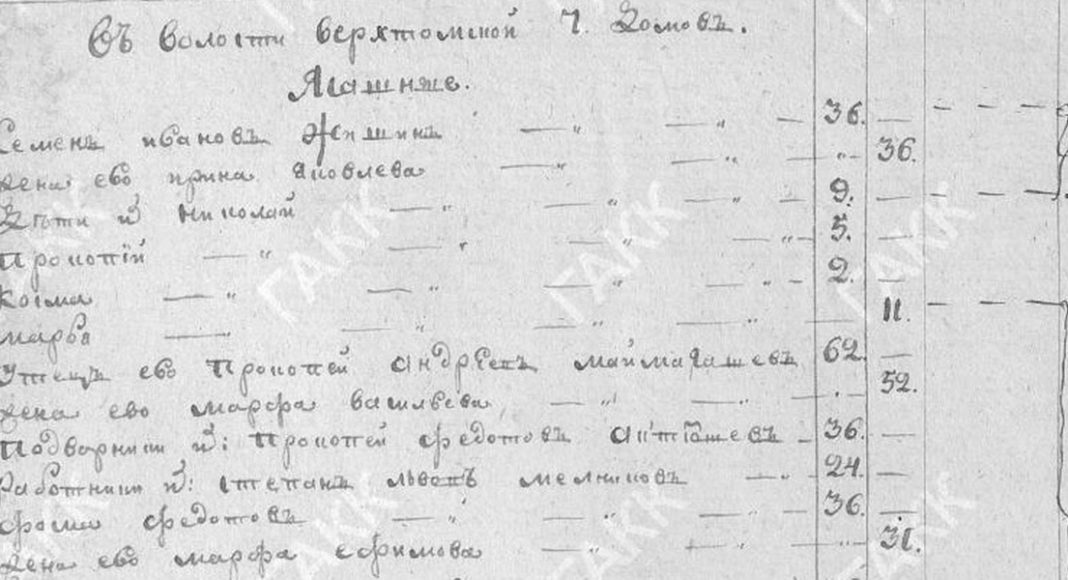 Въ волости верхтомской 7. домовъ.
Ясашные.
Семенъ ивановъ 36.
жена ево ирина яковлева 36.
Дѣти и҃: николай 9.
прокопїй 5.
косма 2.
марѳа 11.
отецъ ево прокопей андрѣевъ маймагашевъ 62.
жена ево марфа васильева 52.
Подворники и҃: прокопей федотовъ 36.
работники и҃: степанъ львовъ мелниковъ 24.
фома федотовъ 36.
жена ево марфа ефимова 31.
ГАКК
ГАКК
ГАКК
ГАКК
ГАКК
ГАКК